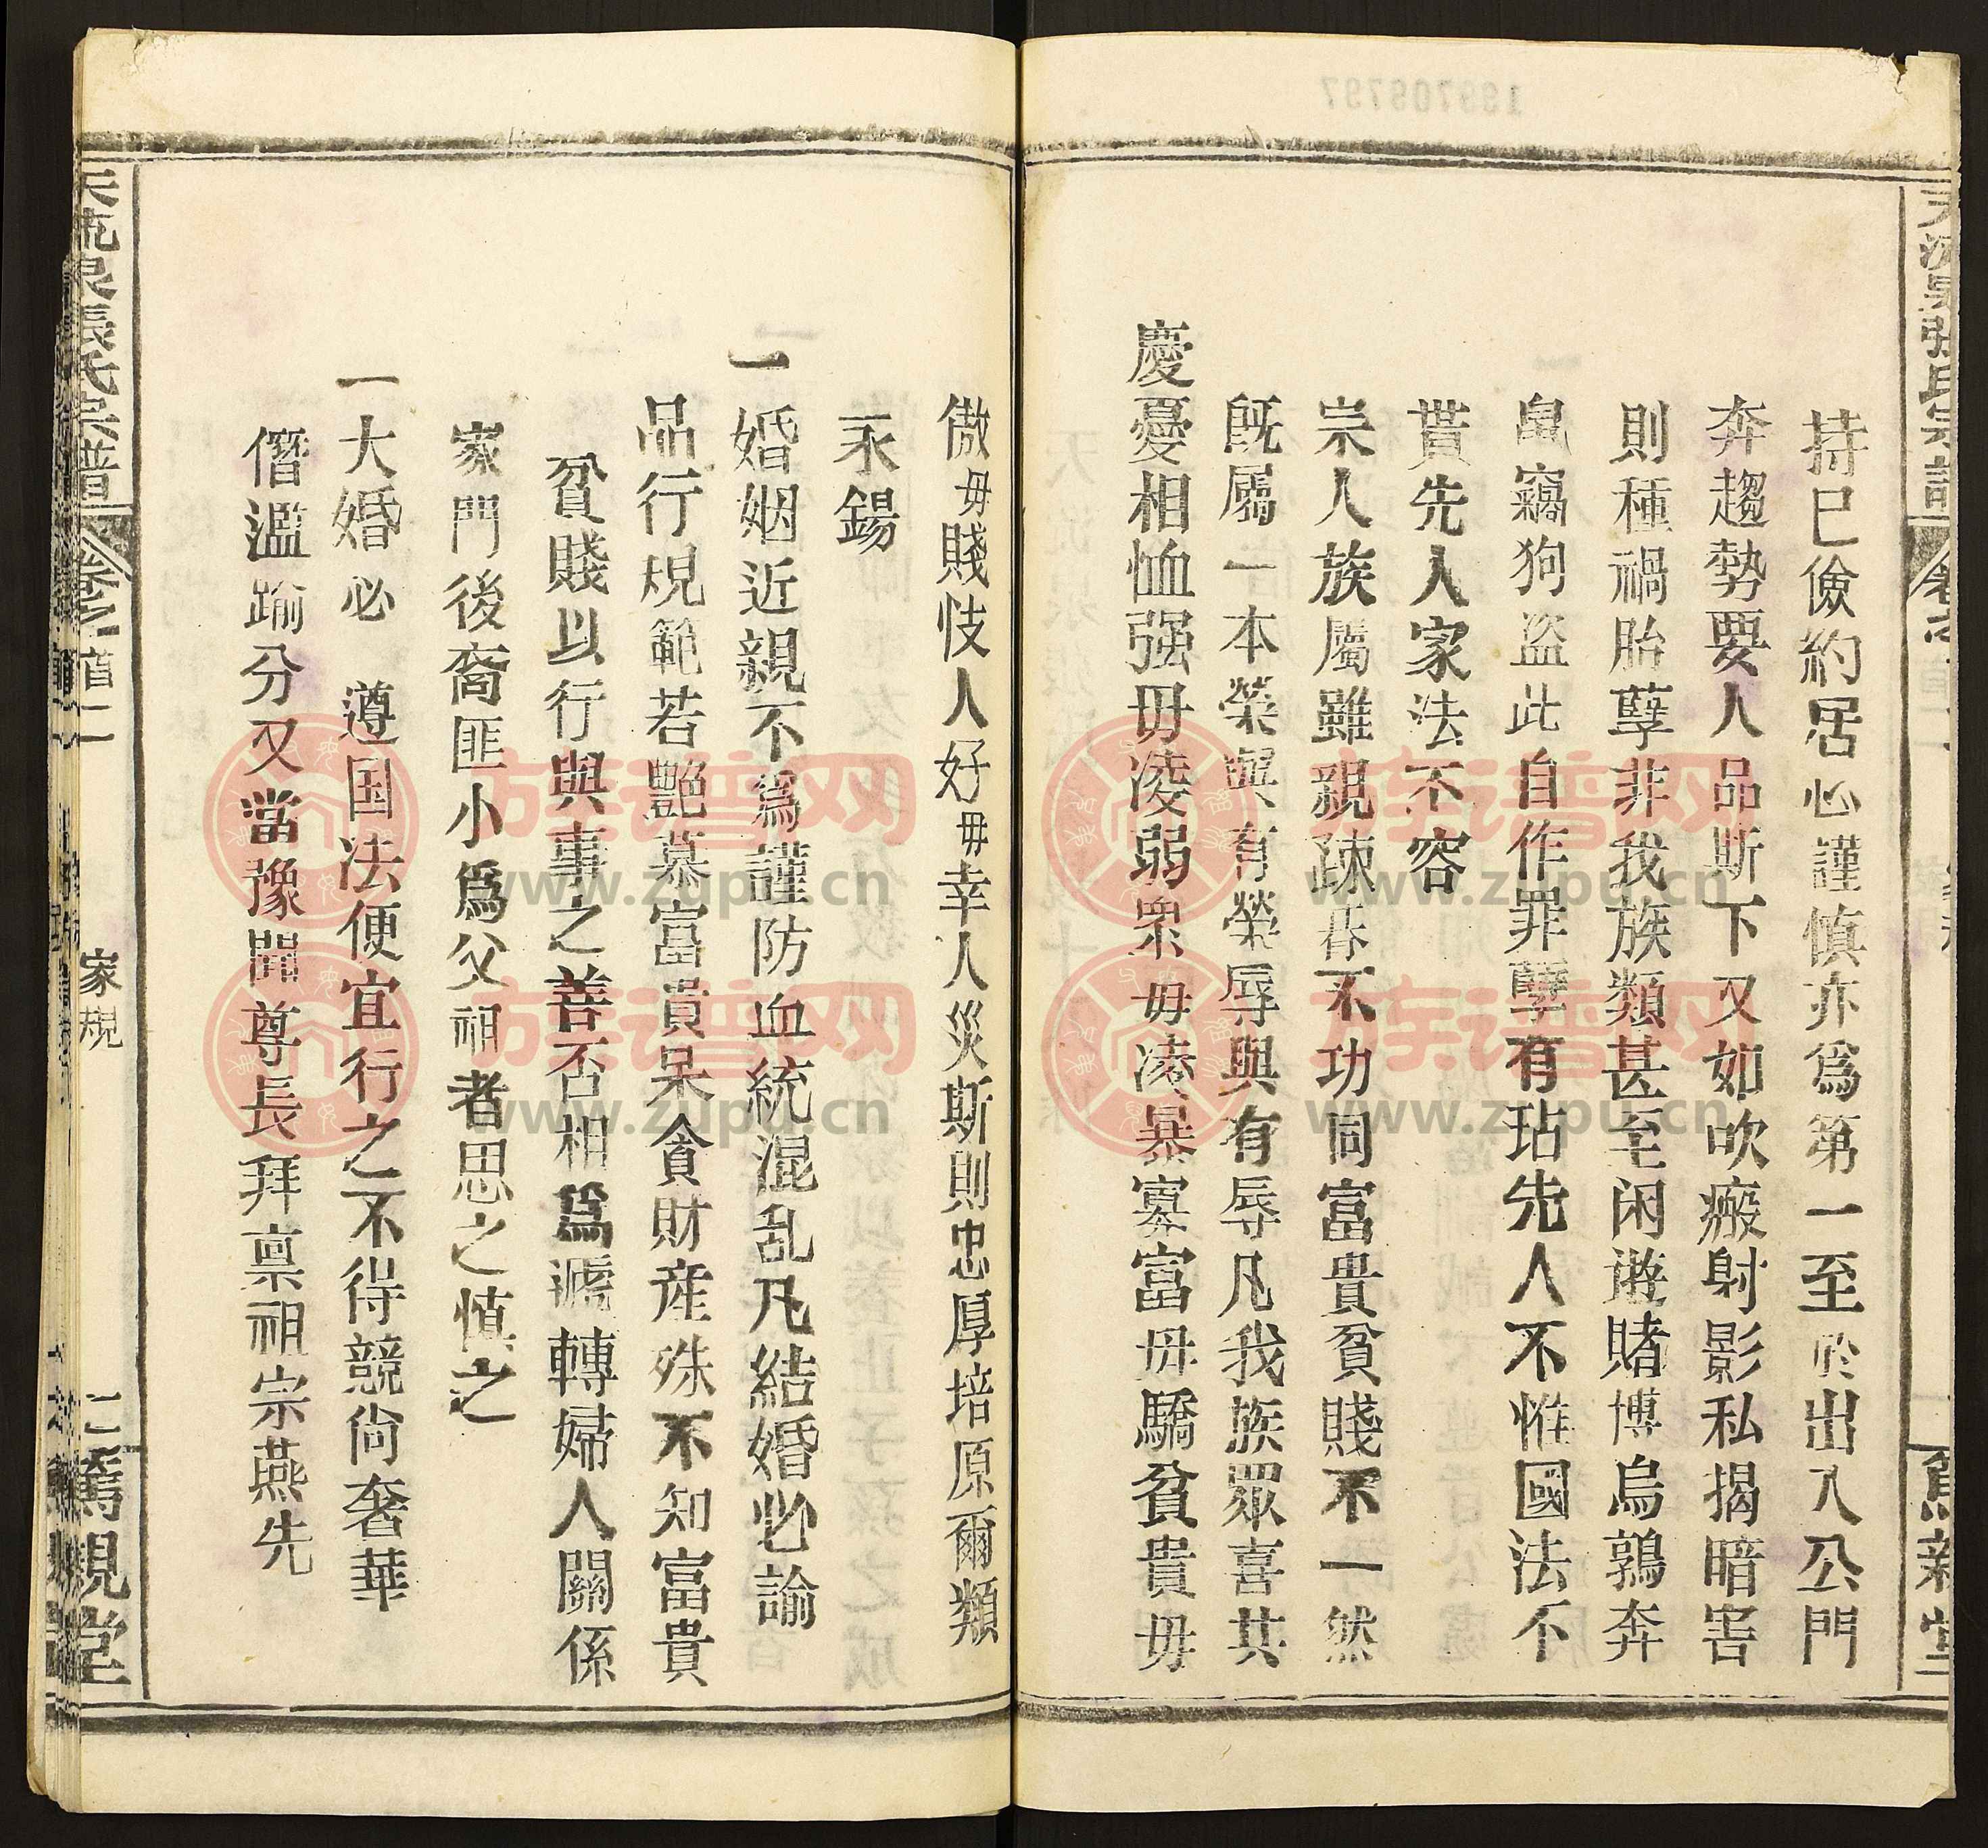 持已儉約居心謹慎亦爲第一至於出入公門
奔趨勢要人品斯下又如吹瘢射影私揭暗害
則種禍胎孽非我族類甚至闲遊賭博烏鶉奔
鼠竊狗盜此自作罪孽有玷先人不惟國法不
貰先人家法不容
宗人族屬雖親踈吝不功同富貴貧賤不一然
旣屬一本榮與有榮辱與有辱凡我族眾喜共
慶憂相恤强毋凌弱衆毋凌暴寡富毋驕貧貴毋
傲毋賤忮人好毋幸人災斯則忠厚培原爾類
永錫
一婚姻近親不爲謹防血統混乱凡結婚必論
品行規範若艷慕富貴呆貪財産殊不知富貴
貧賤以行與事之善否相爲遞轉婦人關係
家門後裔匪小爲父祖者思之慎之
一大婚必 遵国法便宜行之不得競尙奢華
僭濫踰分又當豫聞尊長拜禀祖宗燕先
張氏宗譜
卷之首二
家規
二
篤親堂
族谱网
www.zupu.cn
族谱网
www.zupu.cn
族谱网
www.zupu.cn
族谱网
www.zupu.cn